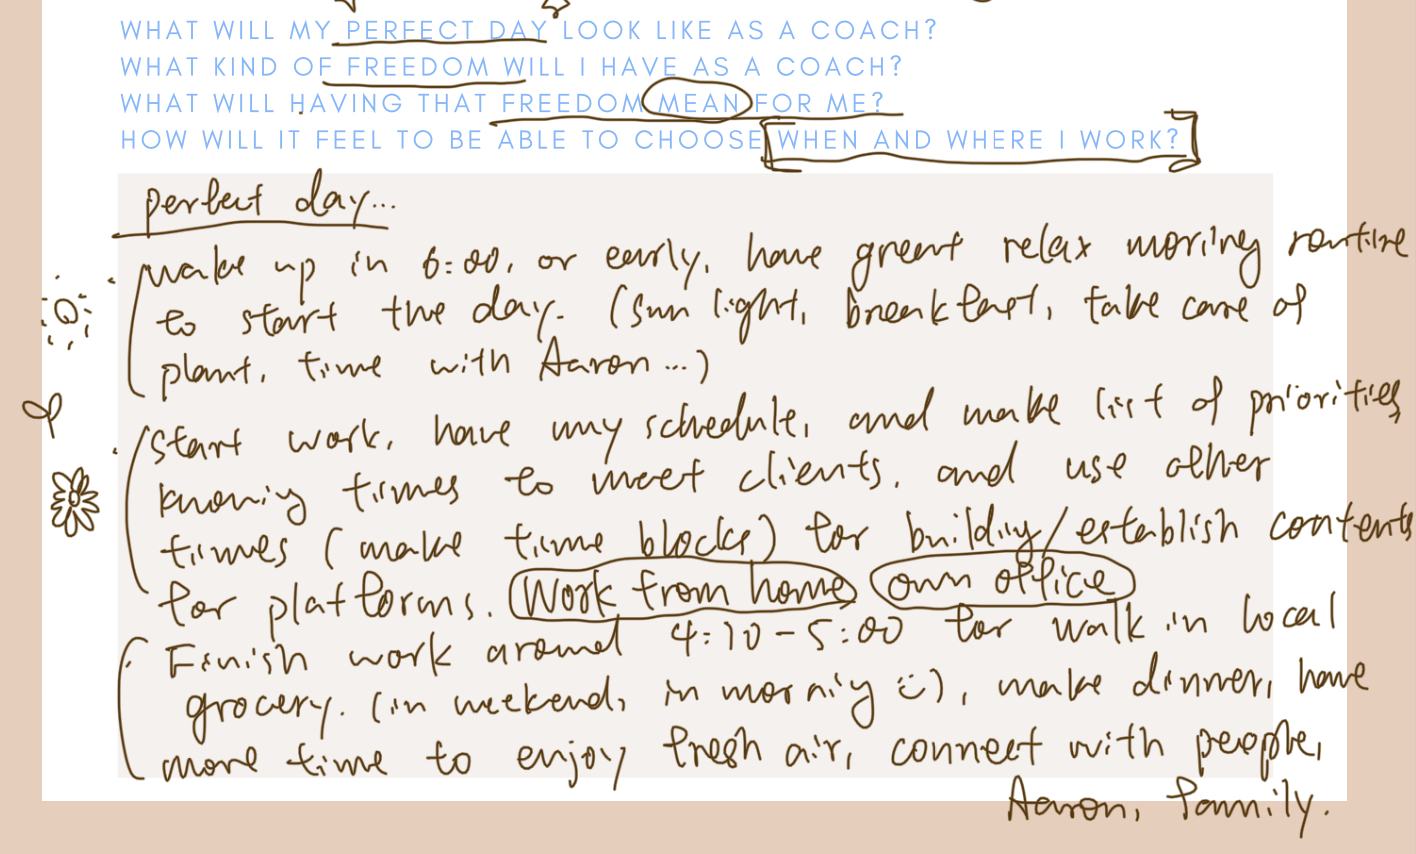 WHAT WILL MY PERFECT DAY LOOK LIKE AS A COACH?
WHAT KIND OF FREEDOM WILL I HAVE AS A COACH?
WHAT WILL HAVING THAT FREEDOM MEAN FOR ME?
HOW WILL IT FEEL TO BE ABLE TO CHOOSE WHEN AND WHERE I WORK?
perfect day...
wake up in 6:00, or early, have great relax morning routine
to start the day. (sun light, breakfast, take care of
plant, time with Aaron...)
start work, have my schedule, and make list of priorities
knowing times to meet clients, and use other
times (make time blocks) for building/establish contents
for platforms. Work from home own office
Finish work around 4:30-5:00 for walk in local
grocery. (in weekend, in morning :), make dinner, have
more time to enjoy fresh air, connect with people,
Aaron, family.